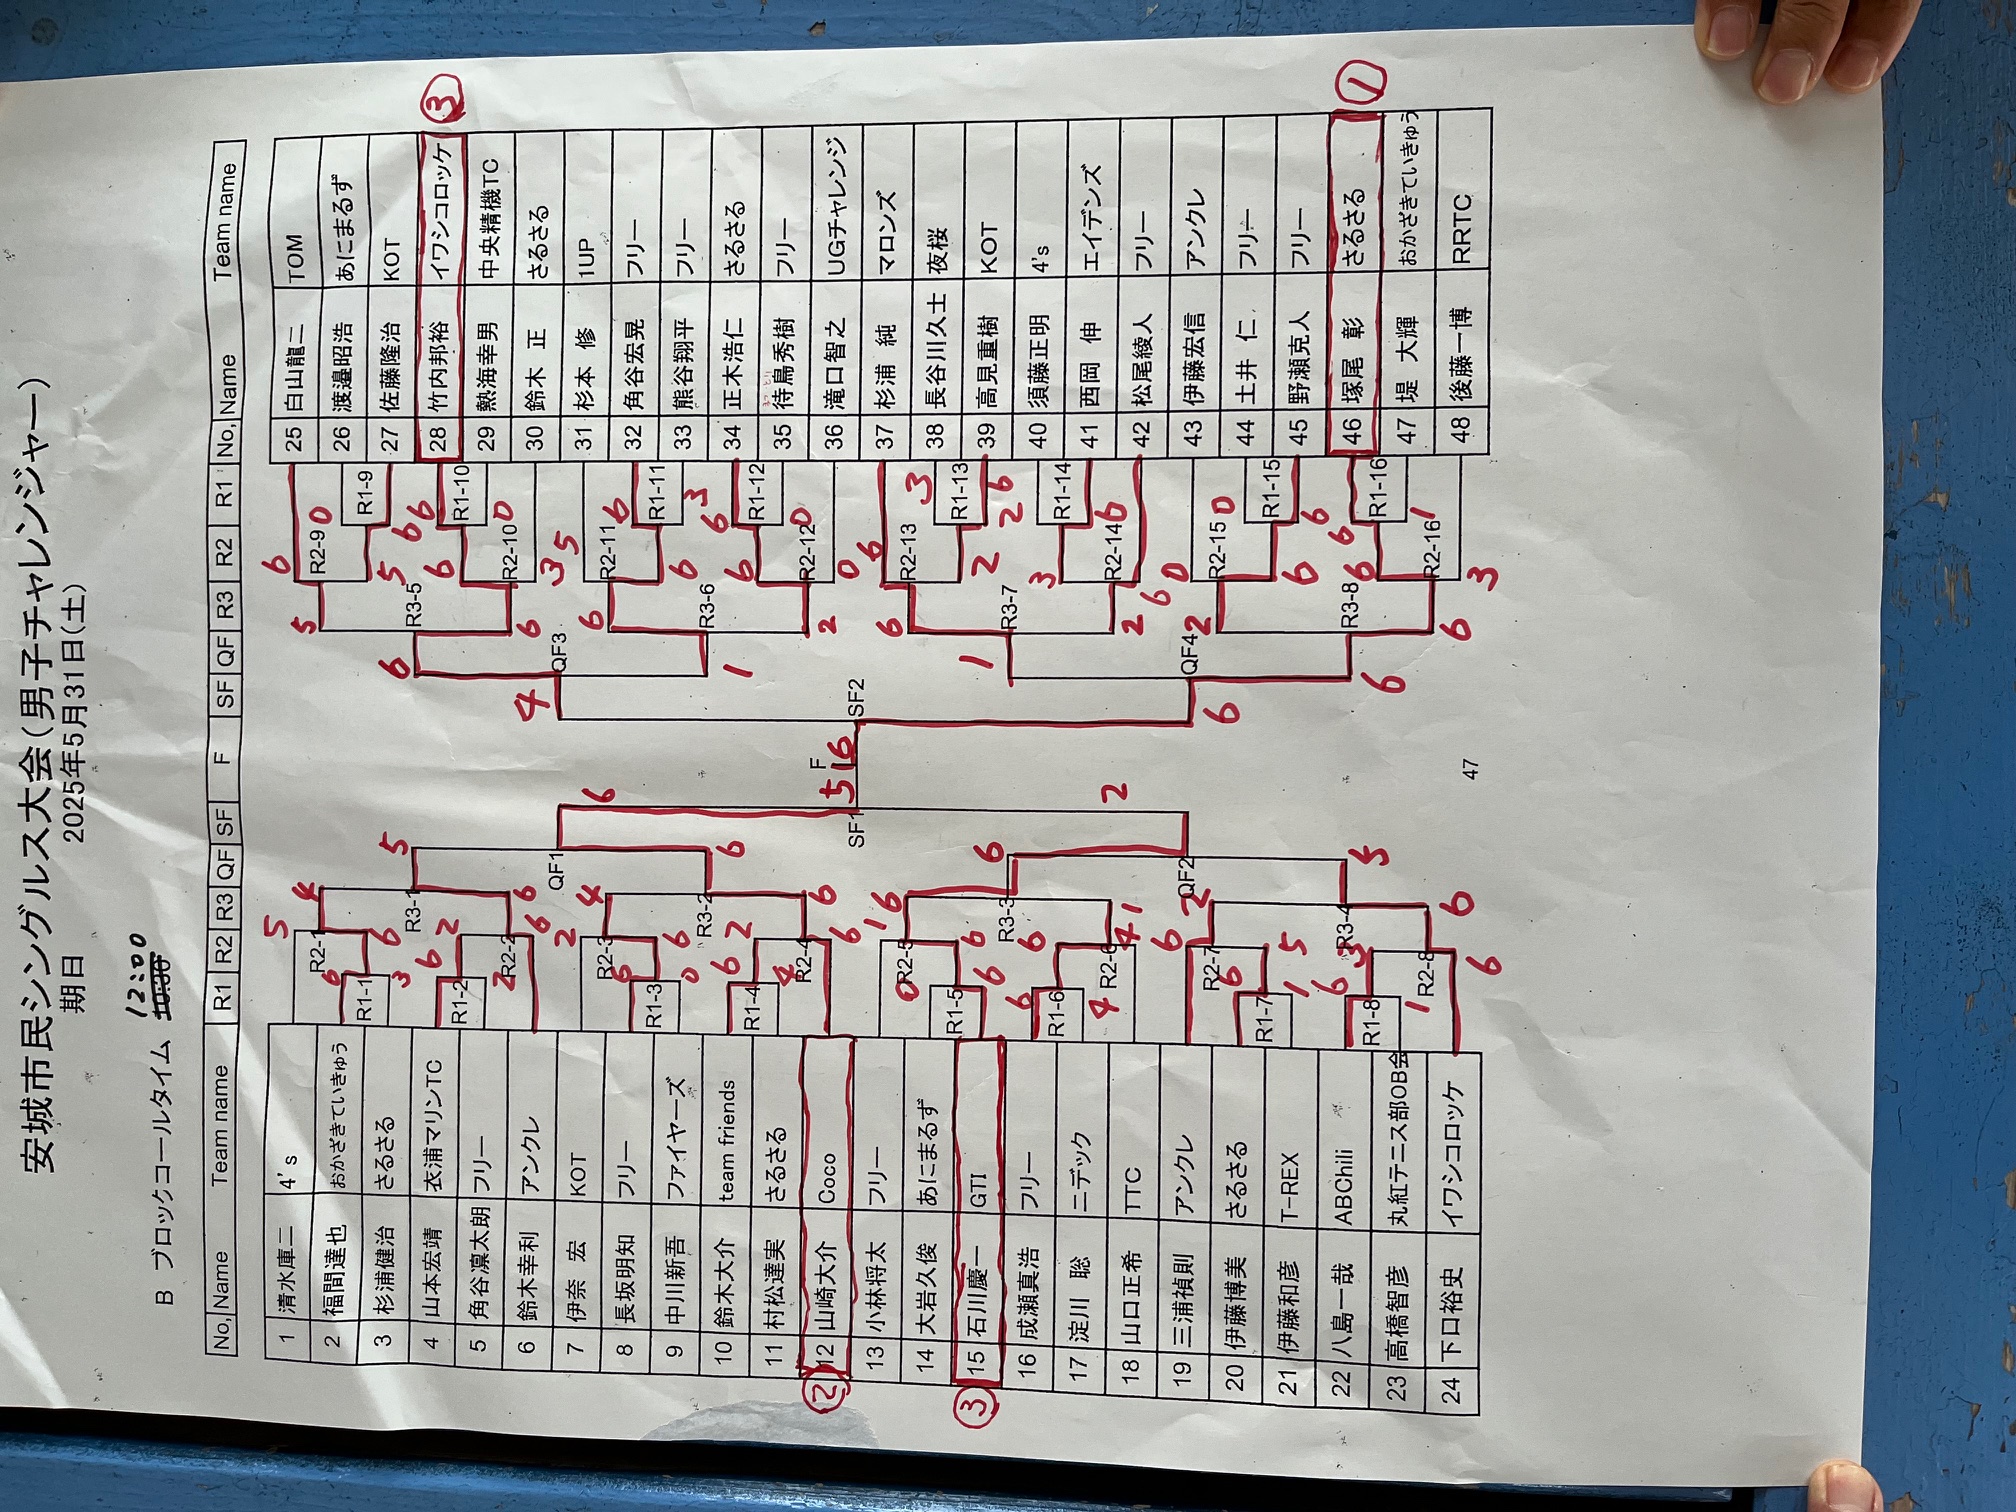 安城市民シングルス大会(男子チャレンジャー)
期日 2025年5月31日(土)
B ブロックコールタイム 10:30 12:00
No, Name Team name R1 R2 R3 QF SF F SF QF R3 R2 R1 No, Name Team name
1 清水庫二 4's
2 福間達也 おかざきていきゅう
3 杉浦健治 さるさる
4 山本宏靖 衣浦マリンTC
5 角谷凛太朗 フリー
6 鈴木幸利 アンクレ
7 伊奈 宏 KOT
8 長坂明知 フリー
9 中川新吾 ファイヤーズ
10 鈴木大介 team friends
11 村松達実 さるさる
② 12 山崎大介 Coco
13 小林将太 フリー
14 大岩久俊 あにまるず
③ 15 石川慶一 GTI
16 成瀬真浩 フリー
17 淀川 聡 ニデック
18 山口正希 TTC
19 三浦禎則 アンクレ
20 伊藤博美 さるさる
21 伊藤和彦 T-REX
22 八島一哉 ABChili
23 高橋智彦 丸紅テニス部OB会
24 下口裕史 イワシコロッケ
R1-1 6 3
R1-2 6
R1-3 6 0
R1-4 6
R1-5 0 6
R1-6 6
R1-7 6 1
R1-8 6 1
R2-1 5 6
R2-2 2 6
R2-3 2 6
R2-4 4 6
R2-5 6
R2-6 6 4
R2-7 6 5
R2-8 3 6
R3-1 4 6
R3-2 4 6
R3-3 6 1
R3-4 2 6
QF1 5 6
QF2 6 5
SF1 6 2
F 5 6
SF2 4 6
QF3 6 1
QF4 1 6
R3-5 5 6
R3-6 6 2
R3-7 6 2
R3-8 2 6
R2-9 6 5
R2-10 6 3
R2-11 5 6
R2-12 6 0
R2-13 6 2
R2-14 3 6
R2-15 0 6
R2-16 6 3
R1-9 0 6
R1-10 6 0
R1-11 6 3
R1-12 6 0
R1-13 3 6
R1-14
R1-15 0 6
R1-16 6 1
25 白山龍二 TOM
26 渡邉昭浩 あにまるず
27 佐藤隆治 KOT
28 竹内邦裕 イワシコロッケ ③
29 熱海幸男 中央精機TC
30 鈴木 正 さるさる
31 杉本 修 1UP
32 角谷宏晃 フリー
33 熊谷翔平 フリー
34 正木浩仁 さるさる
35 待鳥秀樹 フリー
36 滝口智之 UGチャレンジ
37 杉浦 純 マロンズ
38 長谷川久士 夜桜
39 高見重樹 KOT
40 須藤正明 4's
41 西岡 伸 エイデンズ
42 松尾綾人 フリー
43 伊藤宏信 アンクレ
44 土井 仁 フリー
45 野瀬克人 フリー
46 塚尾 彰 さるさる ①
47 堤 大輝 おかざきていきゅう
48 後藤一博 RRTC
47